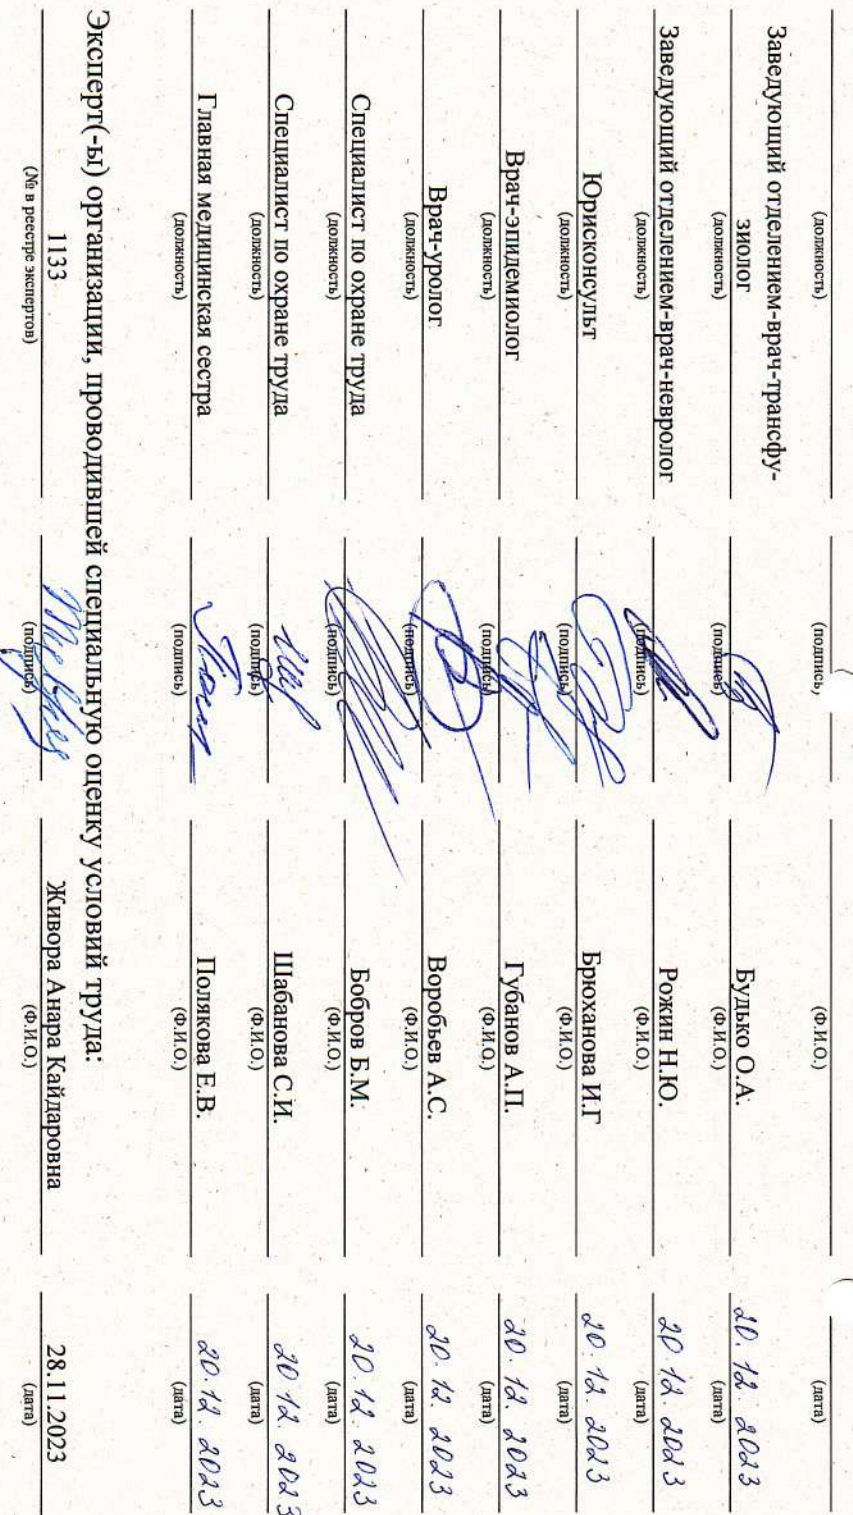 (должность) (подпись) (Ф.И.О.) (дата)
Заведующий отделением-врач-трансфу-
зиолог Будько О.А. 20.12.2023
(должность) (подпись) (Ф.И.О.) (дата)
Заведующий отделением-врач-невролог Рожин Н.Ю. 20.12.2023
(должность) (подпись) (Ф.И.О.) (дата)
Юрисконсульт Брюханова И.Г 20.12.2023
(должность) (подпись) (Ф.И.О.) (дата)
Врач-эпидемиолог Губанов А.П. 20.12.2023
(должность) (подпись) (Ф.И.О.) (дата)
Врач-уролог Воробьев А.С. 20.12.2023
(должность) (подпись) (Ф.И.О.) (дата)
Специалист по охране труда Бобров Б.М. 20.12.2023
(должность) (подпись) (Ф.И.О.) (дата)
Специалист по охране труда Шабанова С.И. 20.12.2023
(должность) (подпись) (Ф.И.О.) (дата)
Главная медицинская сестра Полякова Е.В. 20.12.2023
(должность) (подпись) (Ф.И.О.) (дата)
Эксперт(-ы) организации, проводившей специальную оценку условий труда:
1133 Живора Анара Кайдаровна 28.11.2023
(№ в реестре экспертов) (подпись) (Ф.И.О.) (дата)